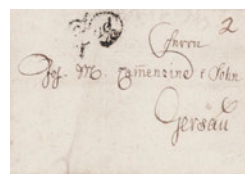 2
Herrn
Jos. M. Camenzind & Sohn
Gersau